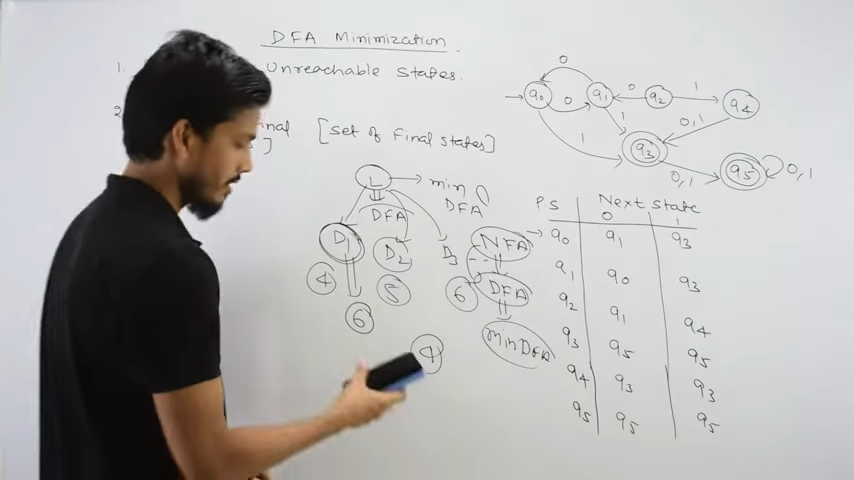 DFA Minimization.
1. Unreachable States.
2
nal [Set of Final States]
]
L min DFA
DFA
D1 D2 D3
4 5 6
6
4
NFA
DFA
minDFA
0
q0 0 q1 0 q2 1 q4
1 1 0,1
q3 q5 0,1
0,1
PS Next State
0 1
q0 q1 q3
q1 q0 q3
q2 q1 q4
q3 q5 q5
q4 q3 q3
q5 q5 q5